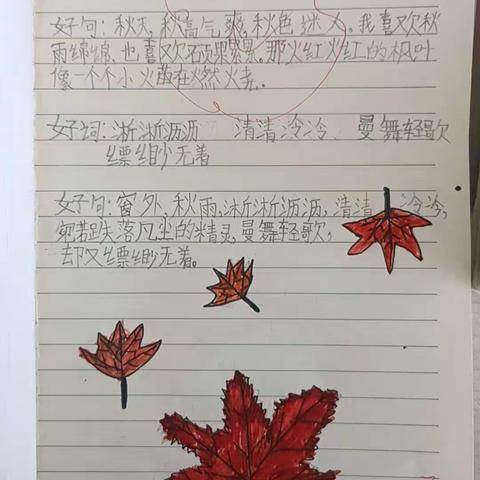 好句:秋天,秋高气爽,秋色迷人。我喜欢秋
雨绵绵,也喜欢硕果累累。那火红火红的枫叶
像一个个小火苗在燃烧。
好词:淅淅沥沥 清清泠泠 曼舞轻歌
缥缈无着
好句:窗外,秋雨,淅淅沥沥,清清泠泠,
宛若跌落凡尘的精灵,曼舞轻歌,
却又缥缈无着。